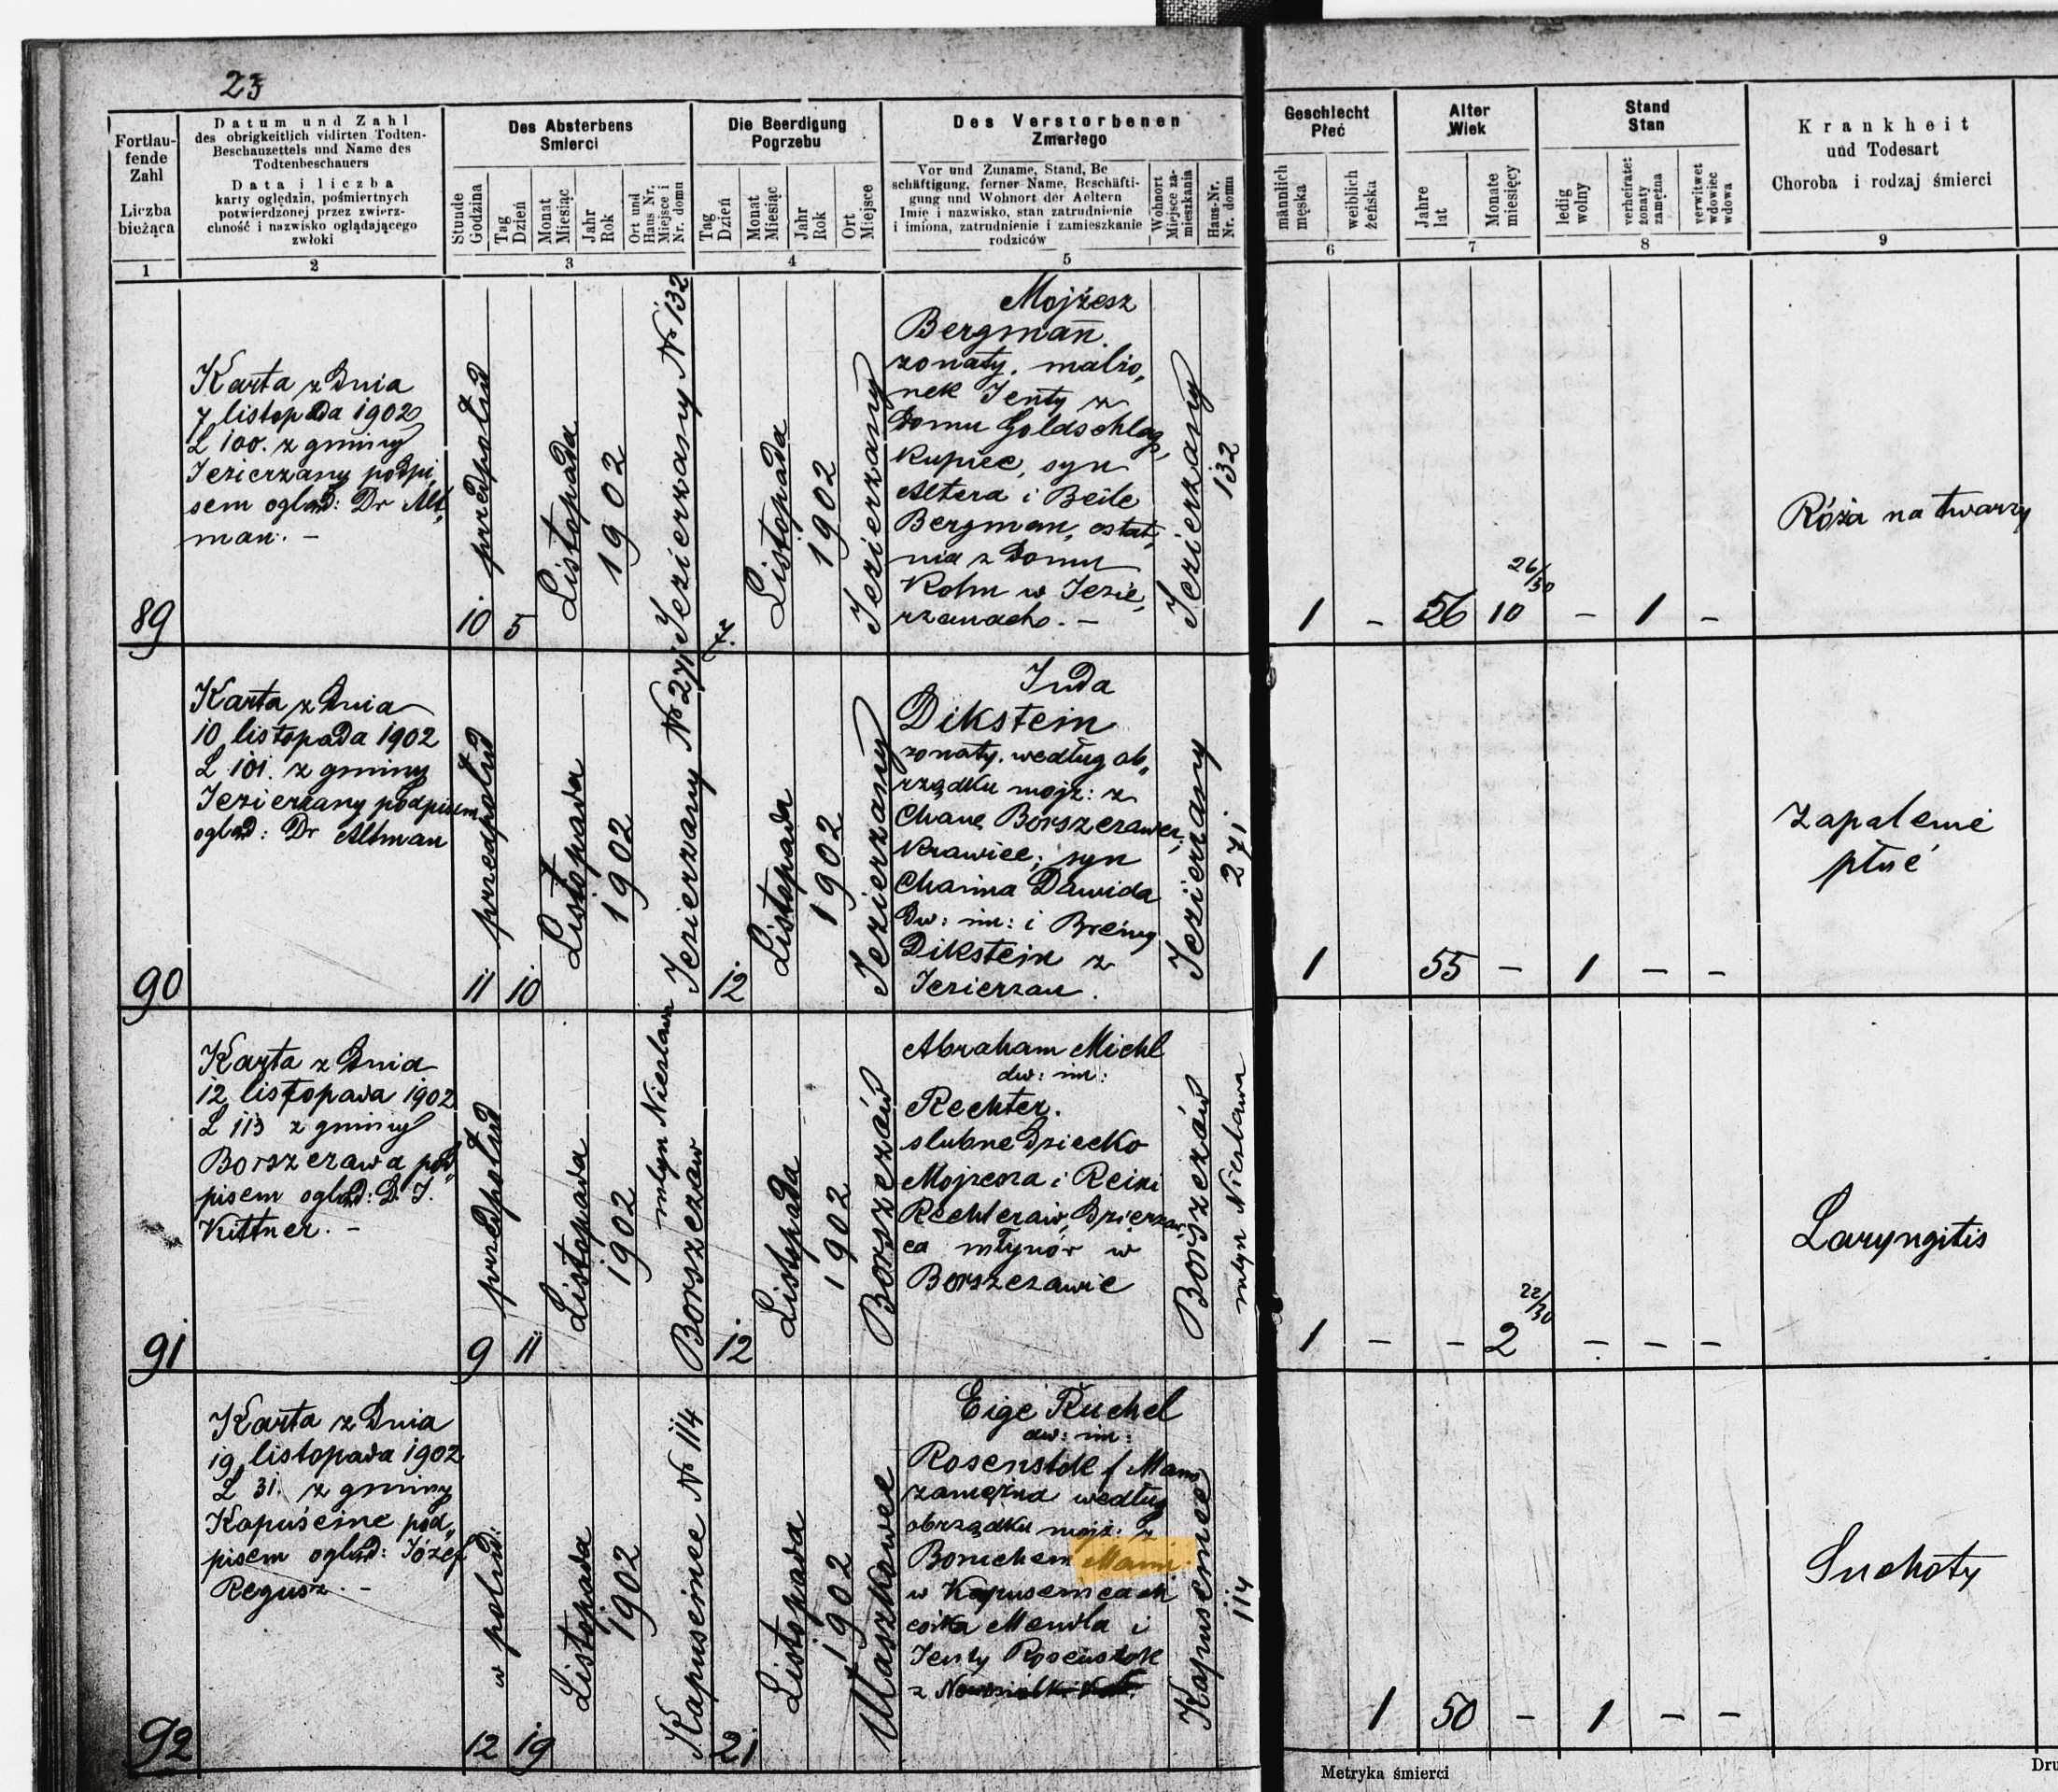 23
Fortlau-
fende
Zahl
Liczba
bieżąca
Datum und Zahl
des obrigkeitlich vidirten Todten-
Beschauzettels und Name des
Todtenbeschauers
Data i liczba
karty oględzin, pośmiertnych
potwierdzonej przez zwierz-
chność i nazwisko oglądającego
zwłoki
Des Absterbens
Smierci
Stunde
Godzina
Tag
Dzień
Monat
Miesiąc
Jahr
Rok
Ort und
Haus Nr.
Miejsce i
Nr. domu
Die Beerdigung
Pogrzebu
Tag
Dzień
Monat
Miesiąc
Jahr
Rok
Ort
Miejsce
Des Verstorbenen
Zmarłego
Vor und Zuname, Stand, Be
schäftigung, ferner Name, Beschäfti-
gung und Wohnort der Aeltern
Imię i nazwisko, stan zatrudnienie
i imiona, zatrudnienie i zamieszkanie
rodziców
Wohnort
Miejsce za-
mieszkania
Haus-Nr.
Nr. domu
Geschlecht
Płeć
männlich
męska
weiblich
żeńska
Alter
Wiek
Jahre
lat
Monate
miesięcy
Stand
Stan
ledig
wolny
verheiratet
żonaty
zamężna
verwitwet
wdowiec
wdowa
Krankheit
und Todesart
Choroba i rodzaj śmierci
1
2
3
4
5
6
7
8
9
89
Karta z dnia
7 listopada 1902
L 100. z gminy
Jezierzany podpi
sem ogląd: Dr Alt
man. —
10
przedpołud
5
Listopada
1902
Jezierzany № 132
7.
Listopada
1902
Jezierzany
Mojżesz
Bergman̄.
zonaty. małżo„
nek Jenty z
domu Goldschlag,
kupiec, syn
Altera i Beile
Bergman, ostat„
nia z domu
Kohn w Jezie„
rzanach. —
Jezierzany
132
1
—
56
10
26/30
—
1
—
Róża na twarzy
90
Karta z dnia
10 listopada 1902
L 101. z gminy
Jezierzany podpisem
ogląd: Dr Altman
11
przedpołud
10
Listopada
1902
Jezierzany № 271
12
Listopada
1902
Jezierzany
Juda
Dikstein
zonaty. według ob„
rządku mojż: z
Chaną Borszczower,
krawiec, syn
Chaima Dawida
dw: im: i Breiny
Dikstein z
Jezierzan.
Jezierzany
271
1
55
—
1
—
—
Zapalenie
płuć
91
Karta z dnia
12 listopada 1902
L 113 z gminy
Borszczowa pod„
pisem ogląd: D. J.
Kittner. —
9
przedpołud
11
Listopada
1902
młyn Niesława
Borszczów
12
Listopada
1902
Borszczów
Abraham Michl
dw: im:
Rechter.
slubne dziecko
Mojzesza i Reizi
Rechterów, dzierżaw„
ca młynów w
Borszczowie
Borszczów
młyn Niesława
1
—
—
2
22/30
—
—
—
Laryngitis
92
Karta z dnia
19 listopada 1902
L 31. z gminy
Kapuścine pod„
pisem ogląd: Józef
Regusz. —
12
w połud:
19
Listopada
1902
Kapuscince № 114
21
Listopada
1902
Ułaszkowce
Eige Ruchel
dw: im:
Rosenstok f Mann
zamężna według
obrządku mojż: z
Boruchem Mann
w Kapuscincach
córka Mendla i
Jenty Rosenstok
z
Kapuscince
114
1
50
—
1
—
—
Suchoty
Metryka śmierci
Dru